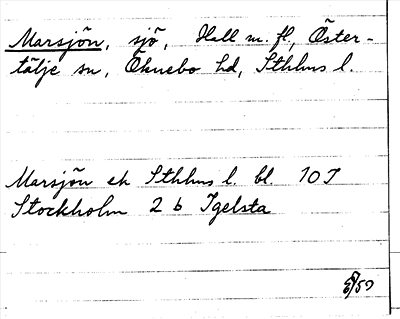 Marsjön, sjö, Hall m. fl., Öster-
tälje sn, Öknebo hd, Sthlms l.
Marsjön ek Sthlms l. bl. 107
Stockholm 2 b Igelsta